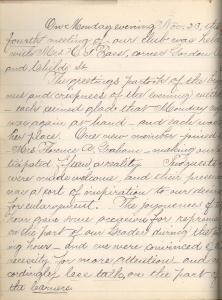 On Monday evening Nov. 23, the
fourth meeting of our club was held
with Mrs. C. F. Bass, corner London
and Childs St.
The guests partook of the
ness and crispness of the evening
each seemed glad that Monday
was again at hand and each was
her place. One new member joined
Mrs. Florence A. Graham making our
a reality
were made welcome, and their presence
was a sort of inspiration to our desire
for enlargement. The joyousness of
gave some occasion for reprimand
on the part of our Leader during the
ing hours and we were convinced of
necessity for more attention and
cordingly less talk, on the part of
the learners.